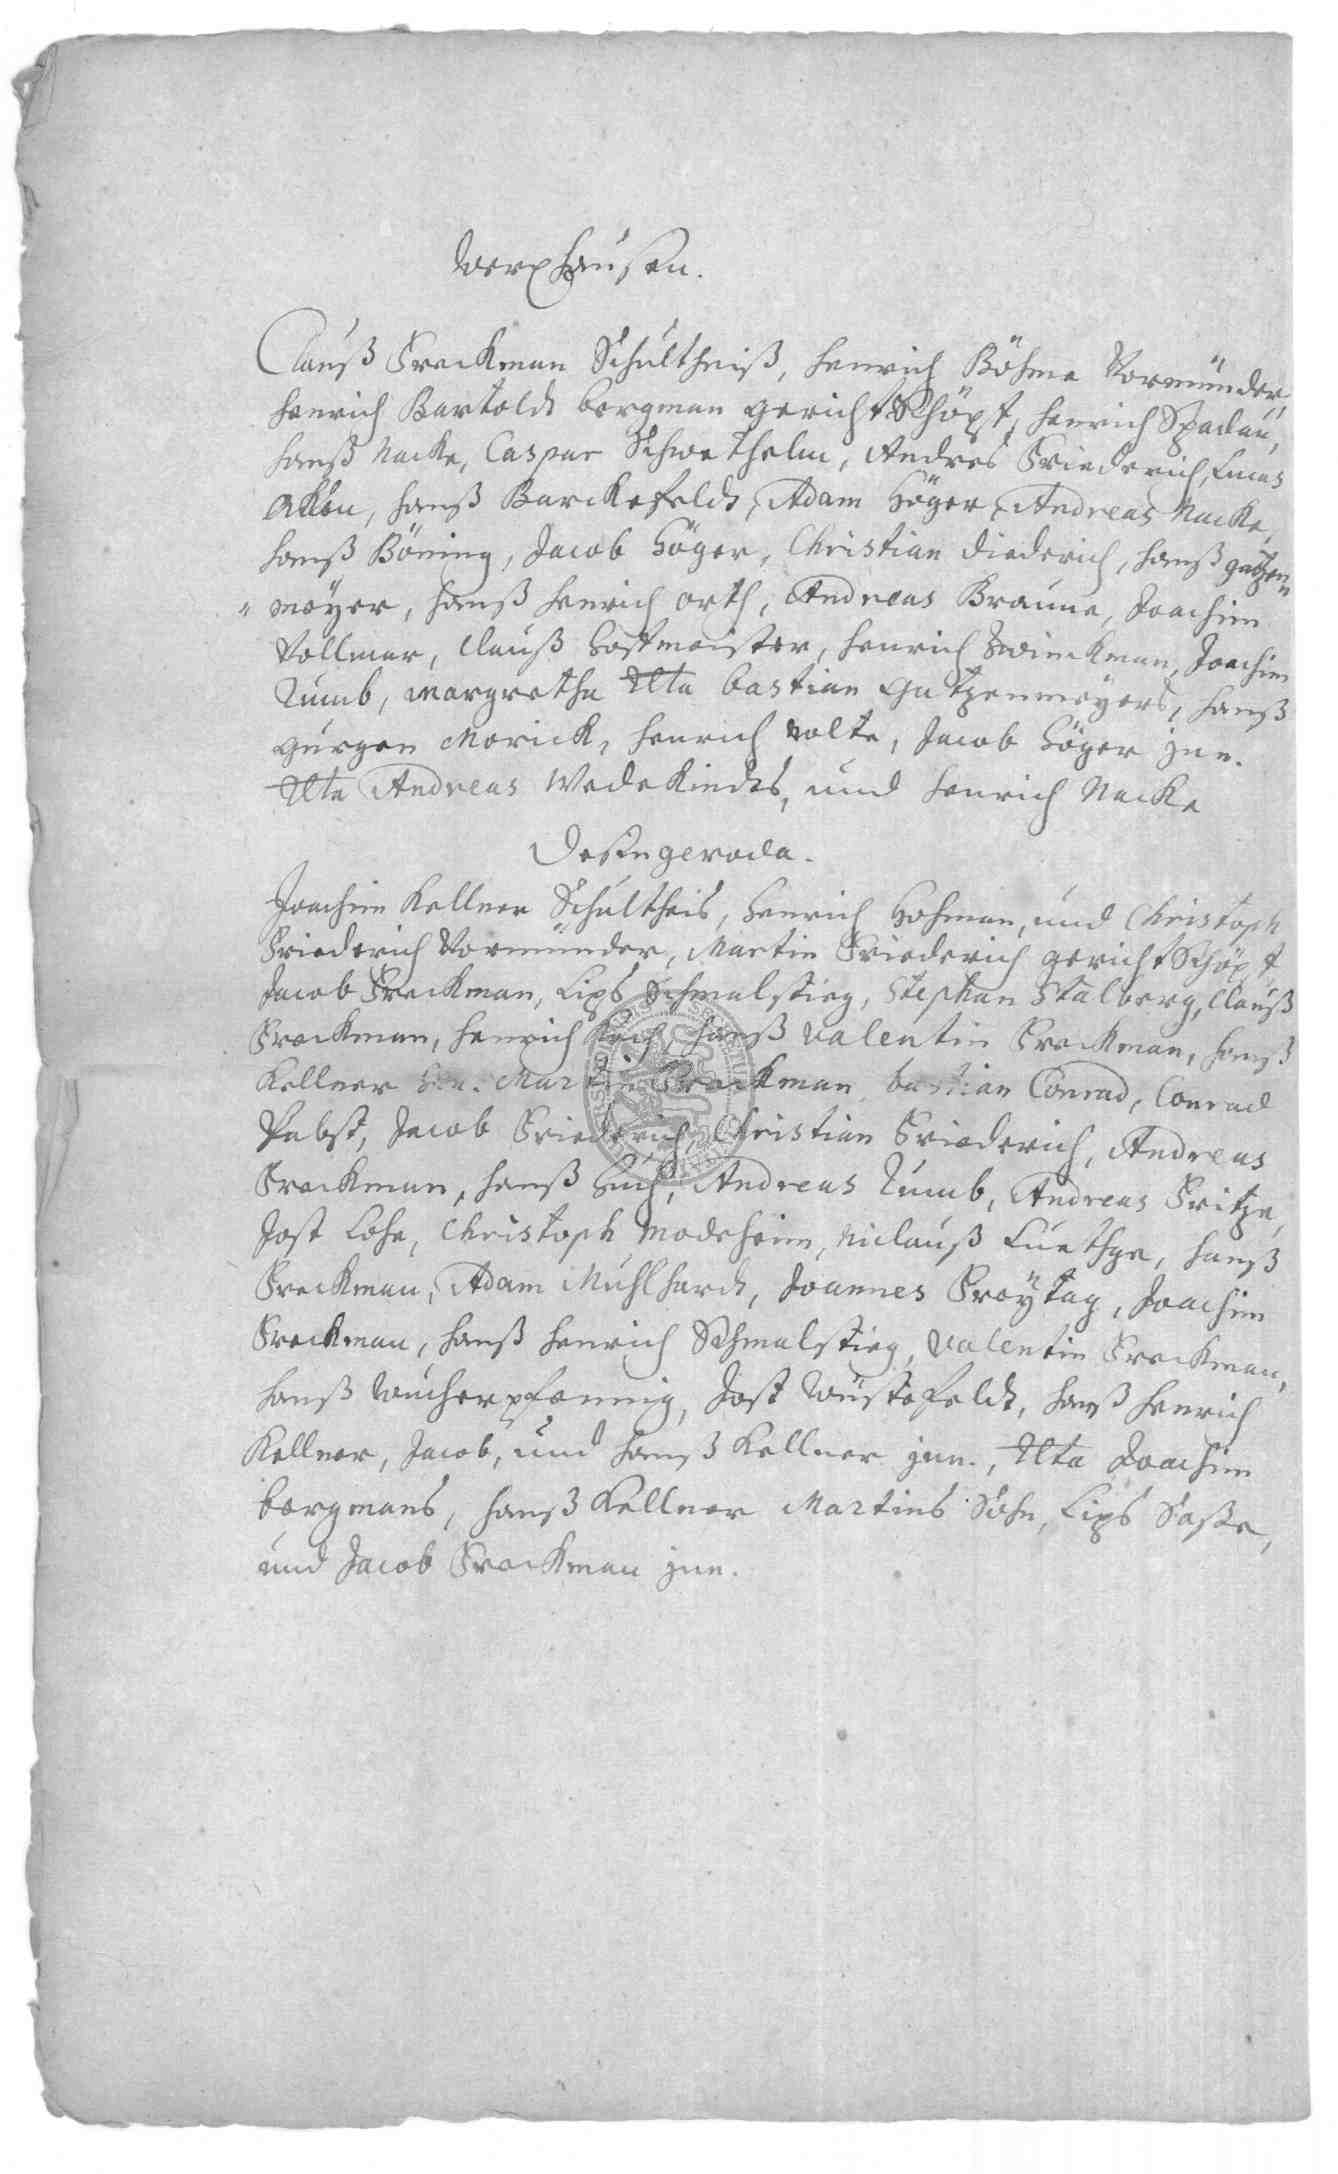 Werxhausen.
Clauß Freckman Schultheiß, Henrich Böhme Vormünder,
Henrich Bartoldt Borgman gerichtSchöpf, Henrich Spadau,
Hanß Nacke, Caspar Schwethelm, Andres Friederich, Lucas
Hanß Barckefeldt, Adam Höger, Andreas Nacke,
Hanß Böning, Jacob Höger, Christian Diederich, Hanß gatzen=
= meÿer, Hanß Henrich Orth, Andreas Braune, Joachim
Vollmer, Clauß Hoffmeister, Henrich Zwinckman, Joachim
Rumb, Margretha Bastian Gatzenmeÿers, Hanß
Gürgen Morick, Henrich Nolte, Jacob Höger jun.
Andreas Wedekindts, und Henrich Nacke
Desingeroda.
Joachim Kellner Schultheis, Henrich Hohman, und Christoph
Friederich Vormünder, Martin Friederich gerichtSchöpf
Jacob Freckman, Lips Schmalstieg, Stephan Stalberg, Clauß
Freckman, Henrich Koch, Hanß Valentin Freckman, Hanß
Kellner Sen. Martin Freckman, bastian Conrad, Conrad
Pabst, Jacob Friederich, Christian Friederich, Andreas
Freckman, Hanß Huch, Andreas Rumb, Andreas Fritze,
Jost Lohe, Christoph Modeheim, Niclauß Luethge, Hanß
Freckman, Adam Muhlhardt, Joannes Freÿtag, Joachim
Freckman, Hanß Henrich Schmalstieg, Valentin Freckman,
Hanß Wucherpfennig, Jost Wüstefeldt, Hanß Henrich
Kellner, Jacob, und Hanß Kellner jun., Joachim
borgmans, Hanß Kellner Martins Sohn, Lips Saße,
und Jacob Freckman jun.